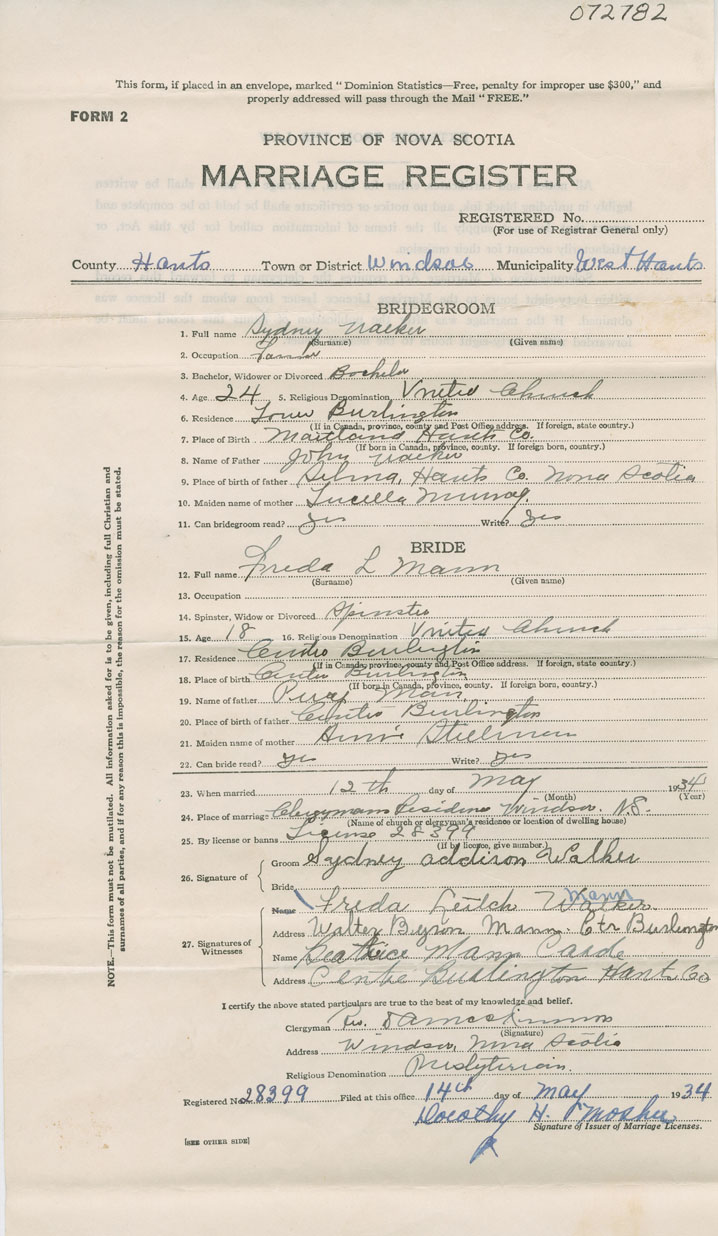 072782
This form, if placed in an envelope, marked "Dominion Statistics—Free, penalty for improper use $300," and
properly addressed will pass through the Mail "FREE."
FORM 2
PROVINCE OF NOVA SCOTIA
MARRIAGE REGISTER
REGISTERED No.
(For use of Registrar General only)
County Hants Town or District Windsor Municipality West Hants
BRIDEGROOM
1. Full name Sydney Walker
(Surname) (Given name)
2. Occupation Farmer
3. Bachelor, Widower or Divorced Bachelor
4. Age 24 5. Religious Denomination United Church
6. Residence Lower Burlington
(If in Canada, province, county and Post Office address. If foreign, state country.)
7. Place of Birth Maitland Hants Co.
(If born in Canada, province, county. If foreign born, country.)
8. Name of Father John Walker
9. Place of birth of father Selma, Hants Co. Nova Scotia
10. Maiden name of mother Lucella Murray
11. Can bridegroom read? yes Write? yes
BRIDE
12. Full name Freda L Mann
(Surname) (Given name)
13. Occupation
14. Spinster, Widow or Divorced Spinster
15. Age 18 16. Religious Denomination United Church
17. Residence Centre Burlington
(If in Canada, province, county and Post Office address. If foreign, state country.)
18. Place of birth Centre Burlington
(If born in Canada, province, county. If foreign born, country.)
19. Name of father Percy Mann
20. Place of birth of father Centre Burlington
21. Maiden name of mother Annie
22. Can bride read? yes Write? yes
23. When married 12th day of May 1934
(Month) (Year)
24. Place of marriage Clergymans Residence Windsor. N.S.
(Name of church or clergyman's residence or location of dwelling house)
25. By license or banns License 28399
(If by licence, give number.)
26. Signature of
Groom Sydney Addison Walker
Bride
Mann
Name Freda Leitch Walker
Address Walter Byron Mann. Ctr Burlington
27. Signatures of Witnesses
Name Beatrice Mann
Address Centre Burlington Hants Co
I certify the above stated particulars are true to the best of my knowledge and belief.
Clergyman Rev. D A McKinnon
(Signature)
Address Windsor, Nova Scotia
Religious Denomination Presbyterian.
Registered No. 28399 Filed at this office 14th day of May 1934
Dorothy H.
Signature of Issuer of Marriage Licenses.
[SEE OTHER SIDE]
NOTE.—This form must not be mutilated. All information asked for is to be given, including full Christian and
surnames of all parties, and if for any reason this is impossible, the reason for the omission must be stated.